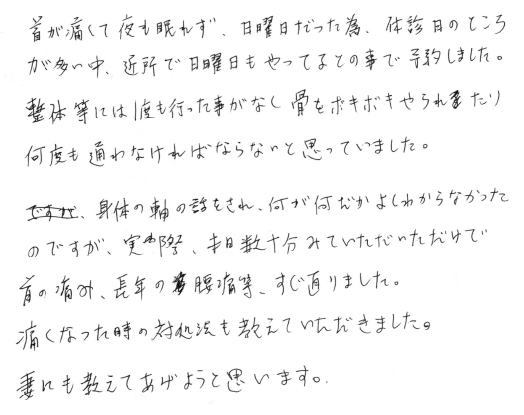 首が痛くて夜も眠れず、日曜日だった為、休診日のところ
が多い中、近所で日曜日もやってるとの事で予約しました。
整体等には1度も行った事がなく骨をボキボキやられたり
何度も通わなければならないと思っていました。
ですが、身体の軸の話をされ、何が何だかよくわからなかった
のですが、実際、数十分みていただいただけで
首の痛み、長年の腰痛等、すぐ直りました。
痛くなった時の対処法も教えていただきました。
妻にも教えてあげようと思います。